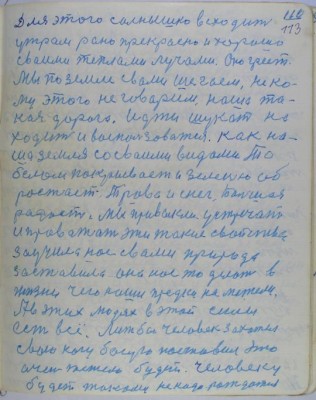 113
Для этого солнышко всходит
утрам рано прекрасно и хорошо
своими теплами лучами. Оно греет.
Мы по земле с вами шегаем, неко-
му этого не говарим, наша та-
кая дорога. Идти шукат на
ходит и воспользоватся. Как на-
ша земля со своими видами. То
белом покрывает и зеленью об
ростает. Трава и снег,
радость. Мы привыкли устречат
и праважат эти такие свойства
Заучила нас с вами природа
заставила она нас то делат в
жизни чего наши предки наметели.
А в этих людях в этой силы
есть всё. Любой человек захотел
свою ногу босую поставил это
очен тяжело будет. Человеку
будет такому не надо рождатся